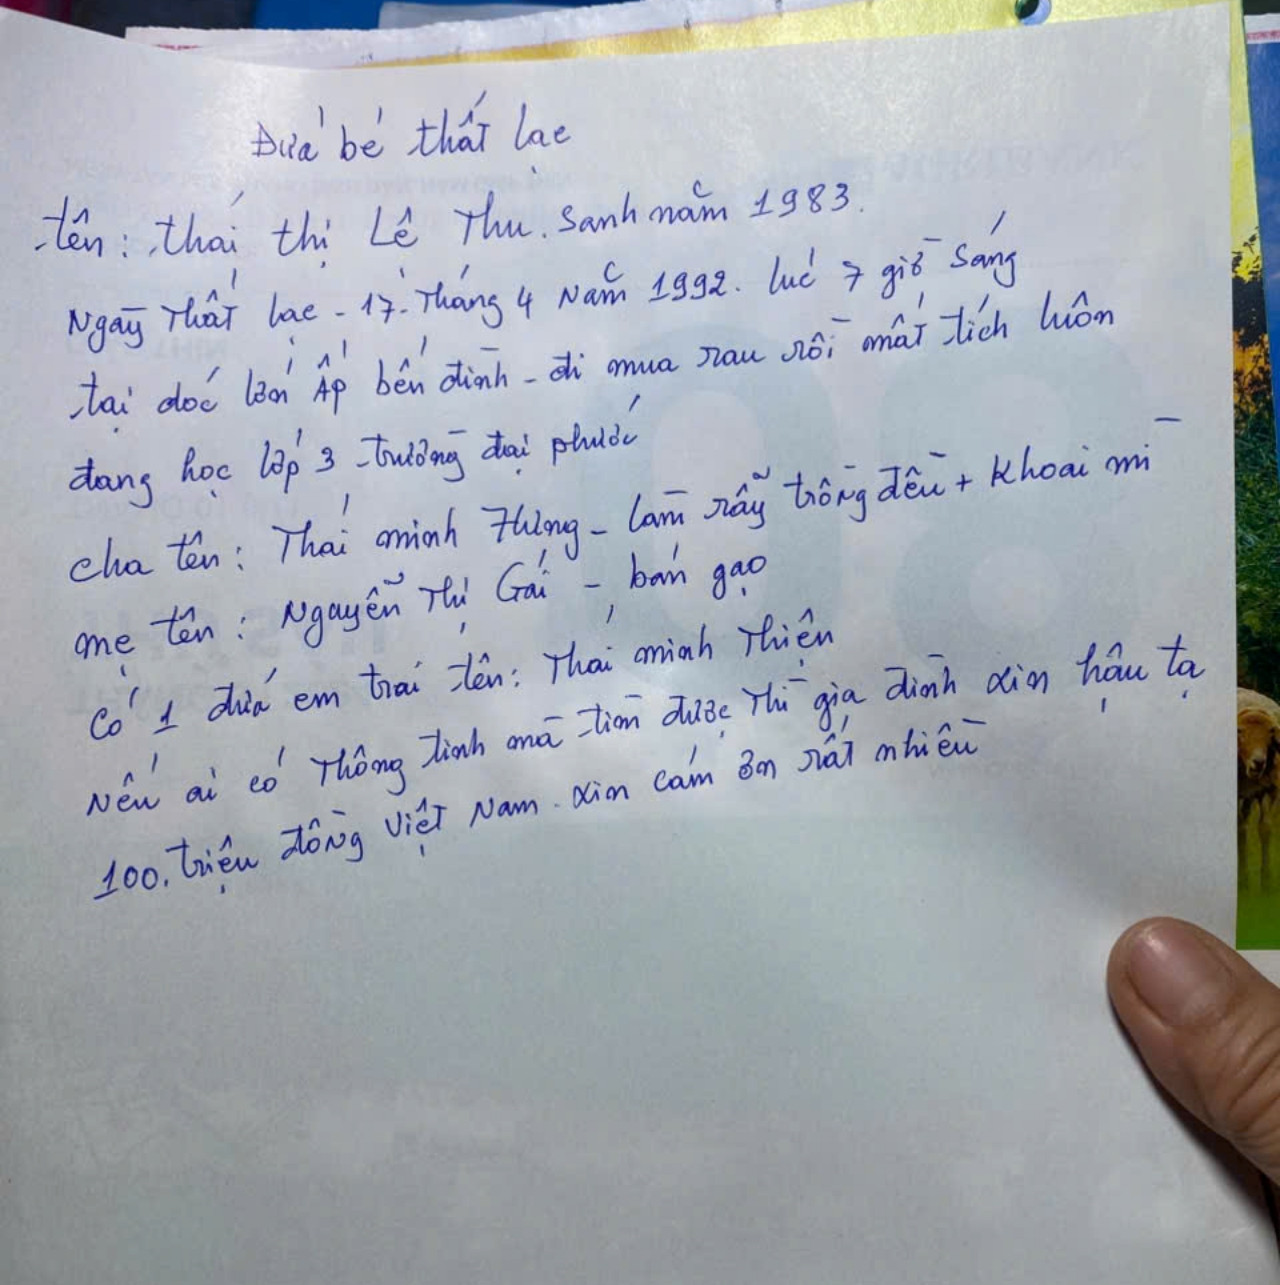 Đứa bé thất lạc
tên: thái thị Lê Thu. sanh năm 1983.
Ngày thất lạc - 17. Tháng 4 Năm 1992. lúc 7 giờ sáng
tại dóc lớn Ấp bến đình - đi mua rau rồi mất tích luôn
đang học lớp 3 - trường đại phước
cha tên: Thái minh Hùng - làm rẫy trồng đều + Khoai mì
mẹ tên: Nguyễn Thị Gái - bán gạo
có 1 đứá em trai tên: Thái minh Thiện
Nếu ai có Thông tinh mà tìm được Thì gia đình xin hậu tạ
100. triệu đồng Việt Nam. xin cám ơn rất nhiều